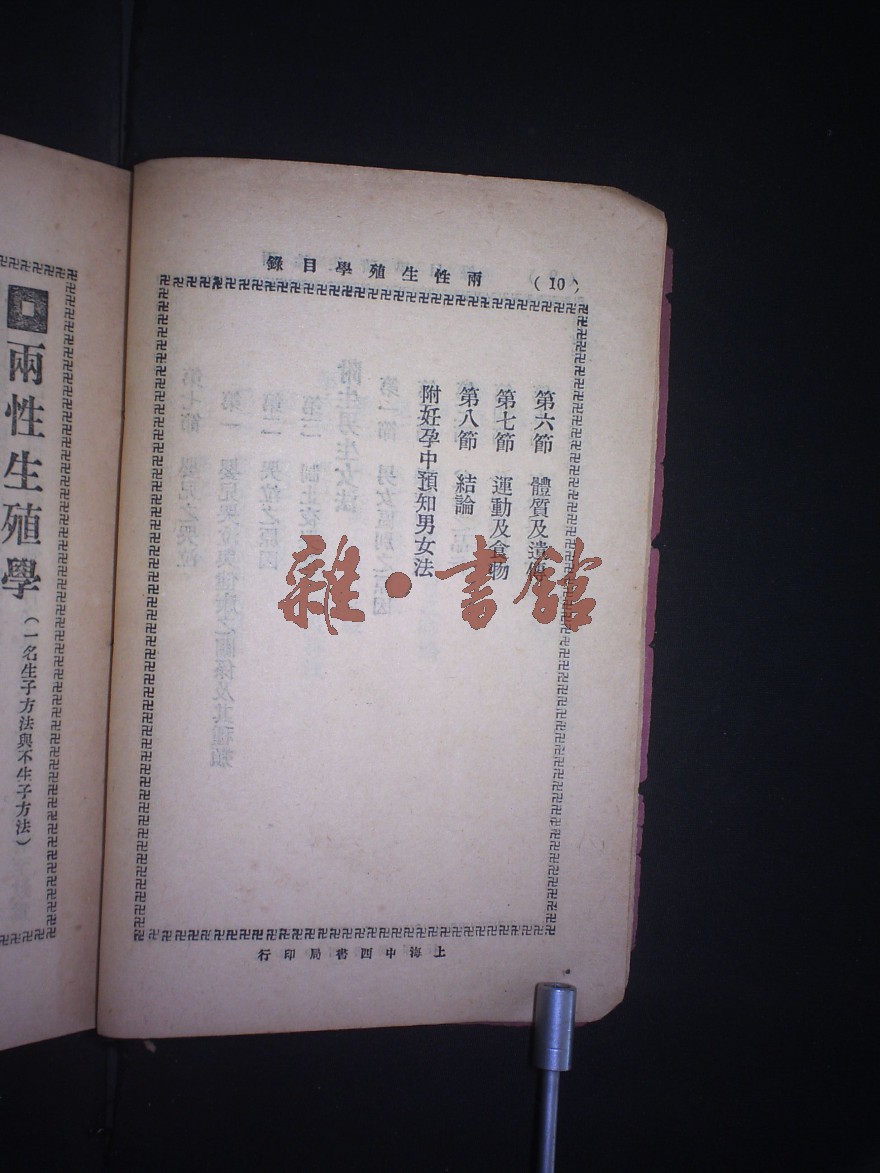 兩性生殖學目錄
（10）
第六節　體質及遺傳
第七節　運動及食物
第八節　結論
附妊孕中預知男女法
上海中西書局印行
雜·書館
兩性生殖學（一名生子方法與不生子方法）